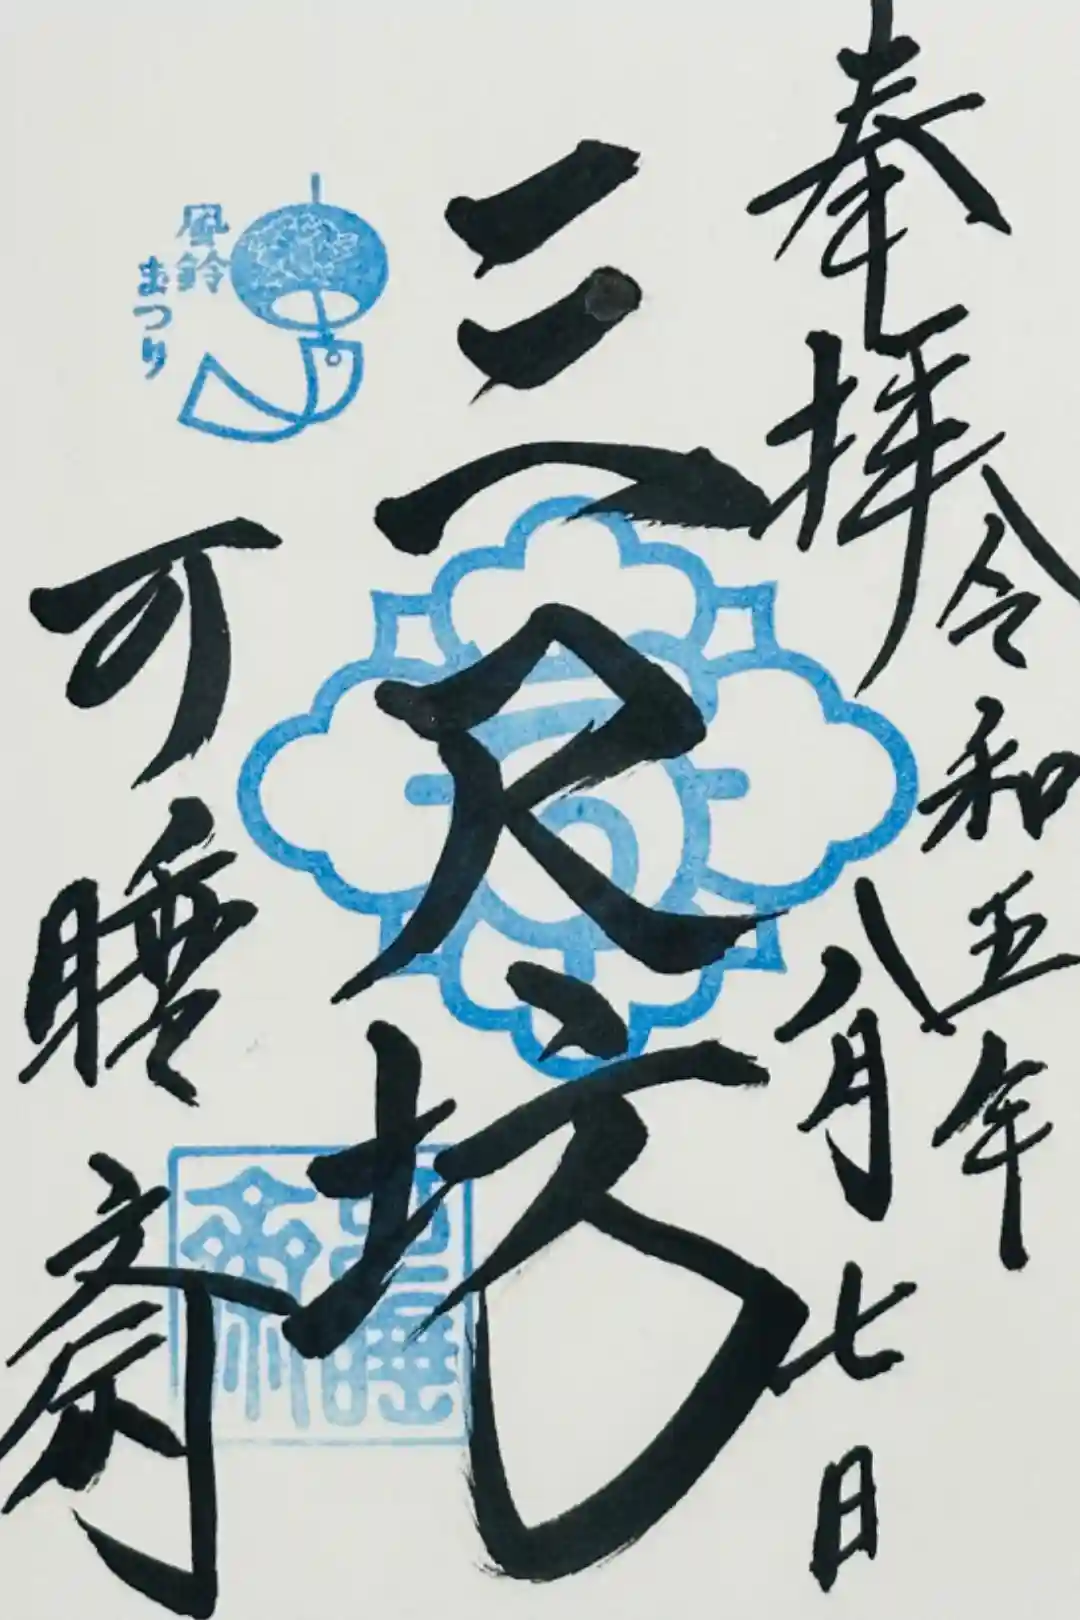 奉拝
令和五年
八月七日
三尺坊
風鈴
まつり
可睡斎
可睡
斎